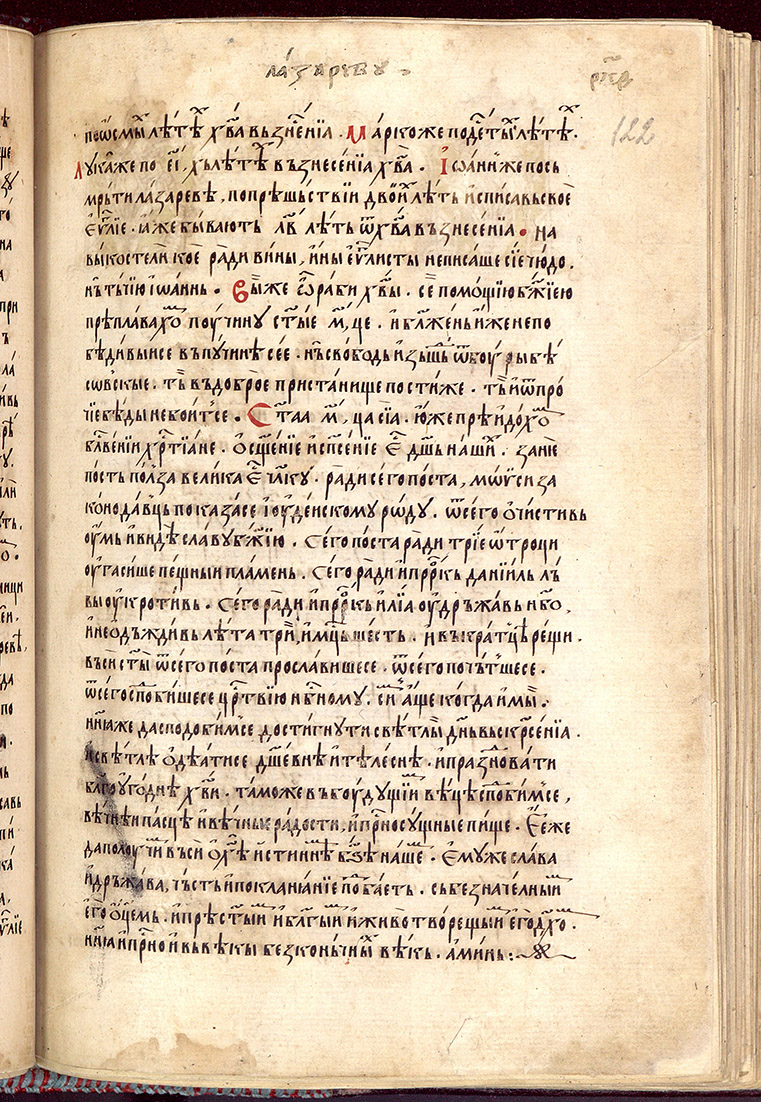 лазареву
122
по осмы̑ лѣтѣ̑ хв҃а възнⷭ҇енїа · Марко же по дⷭ҇етыⷯ лѣтѣⷯ ·
Лука же по еі҃, хъ лѣтѣⷯ възнесенїа хв҃а · Іѡаннь же по сь
мрьти лазаревѣ, по прѣшьствїи двоиⷯ лѣть и списа въскоѐ
еѵⷢ҇лїе · ꙗже бывають лв҃ лѣть ѿ хв҃а възнесенїа · на
вы костели кое ради вины, ины еѵⷢ҇листы не писаше сїе чюдо ·
нь тьчїю іѡаннь ·
прѣплавахѡⷨ поучину ст҃ые м҃, це · и бл҃жень иже не по
бѣди вы се въ пучинѣ сее ·
тъ въ доброе пристанище постиже ·
чїе бѣды не боитⷭ҇се · Ст҃аа м҃, ца сїа · юже прѣидохѡⷨ
бл҃вении хрⷭ҇тїане · ѡсщ҃енїе и спⷭ҇енїе еⷭ҇ дш҃ь нашиⷯ · занѥ
пость полза велика еⷭ҇ чл҃ку · ради сего поста, мѡѵси за
конодавць показа се іоудейскому рѡду · ѿ сего ѡчистивь
оумь и видѣ славу бж҃їю · Сего поста ради трїе ѡтроци
оугасише пещныи пламень · Сего ради и прⷪ҇ркь данїиль ль
вы оукротивь · Сего ради и прⷪ҇ркь илїа оудръжавь нб҃о,
и не одъжди вь лѣта три, и мⷭ҇ць шесть · и въкратцѣ рещи ·
въси ст҃ы ѿ сего поста прославише се · ѿ сего почьтⷭ҇ше се ·
ѿ сего спⷣобише се црⷭ҇твїю нбⷭ҇ному · аще когда и мы ·
нн҃ꙗ же да сподобимⷭ҇се достигнути свѣтлы дн҃ь въскрⷭ҇сенїа ·
и свѣтлѣ ѡдѣати се дш҃евнѣ и тѣлеснѣ · и празⷣновати
бл҃гоугоднѣ хв҃и · тамо же въ боудущїи вѣцѣ спⷣобимⷭ҇се,
вѣчнѣи пасцѣ и вѣчныꙗ радости, и прⷭ҇носущные пище · Еѥ же
да получи въси ѡ хⷭ҇ѣ истиннѣ бз҃ѣ нашеⷨ · Емуже слава
и дръжава, чьсть и покланꙗнїе пⷣобаеть · сь безначелныиⷨ
его ѡц҃емь · и прѣст҃ыиⷨ и бл҃гыиⷨ и животворещыиⷨ его дх҃ѡⷨ ·
нн҃ꙗ и прⷭ҇но и вь вѣкы бесконьчныⷯ вѣкь · аминь :·